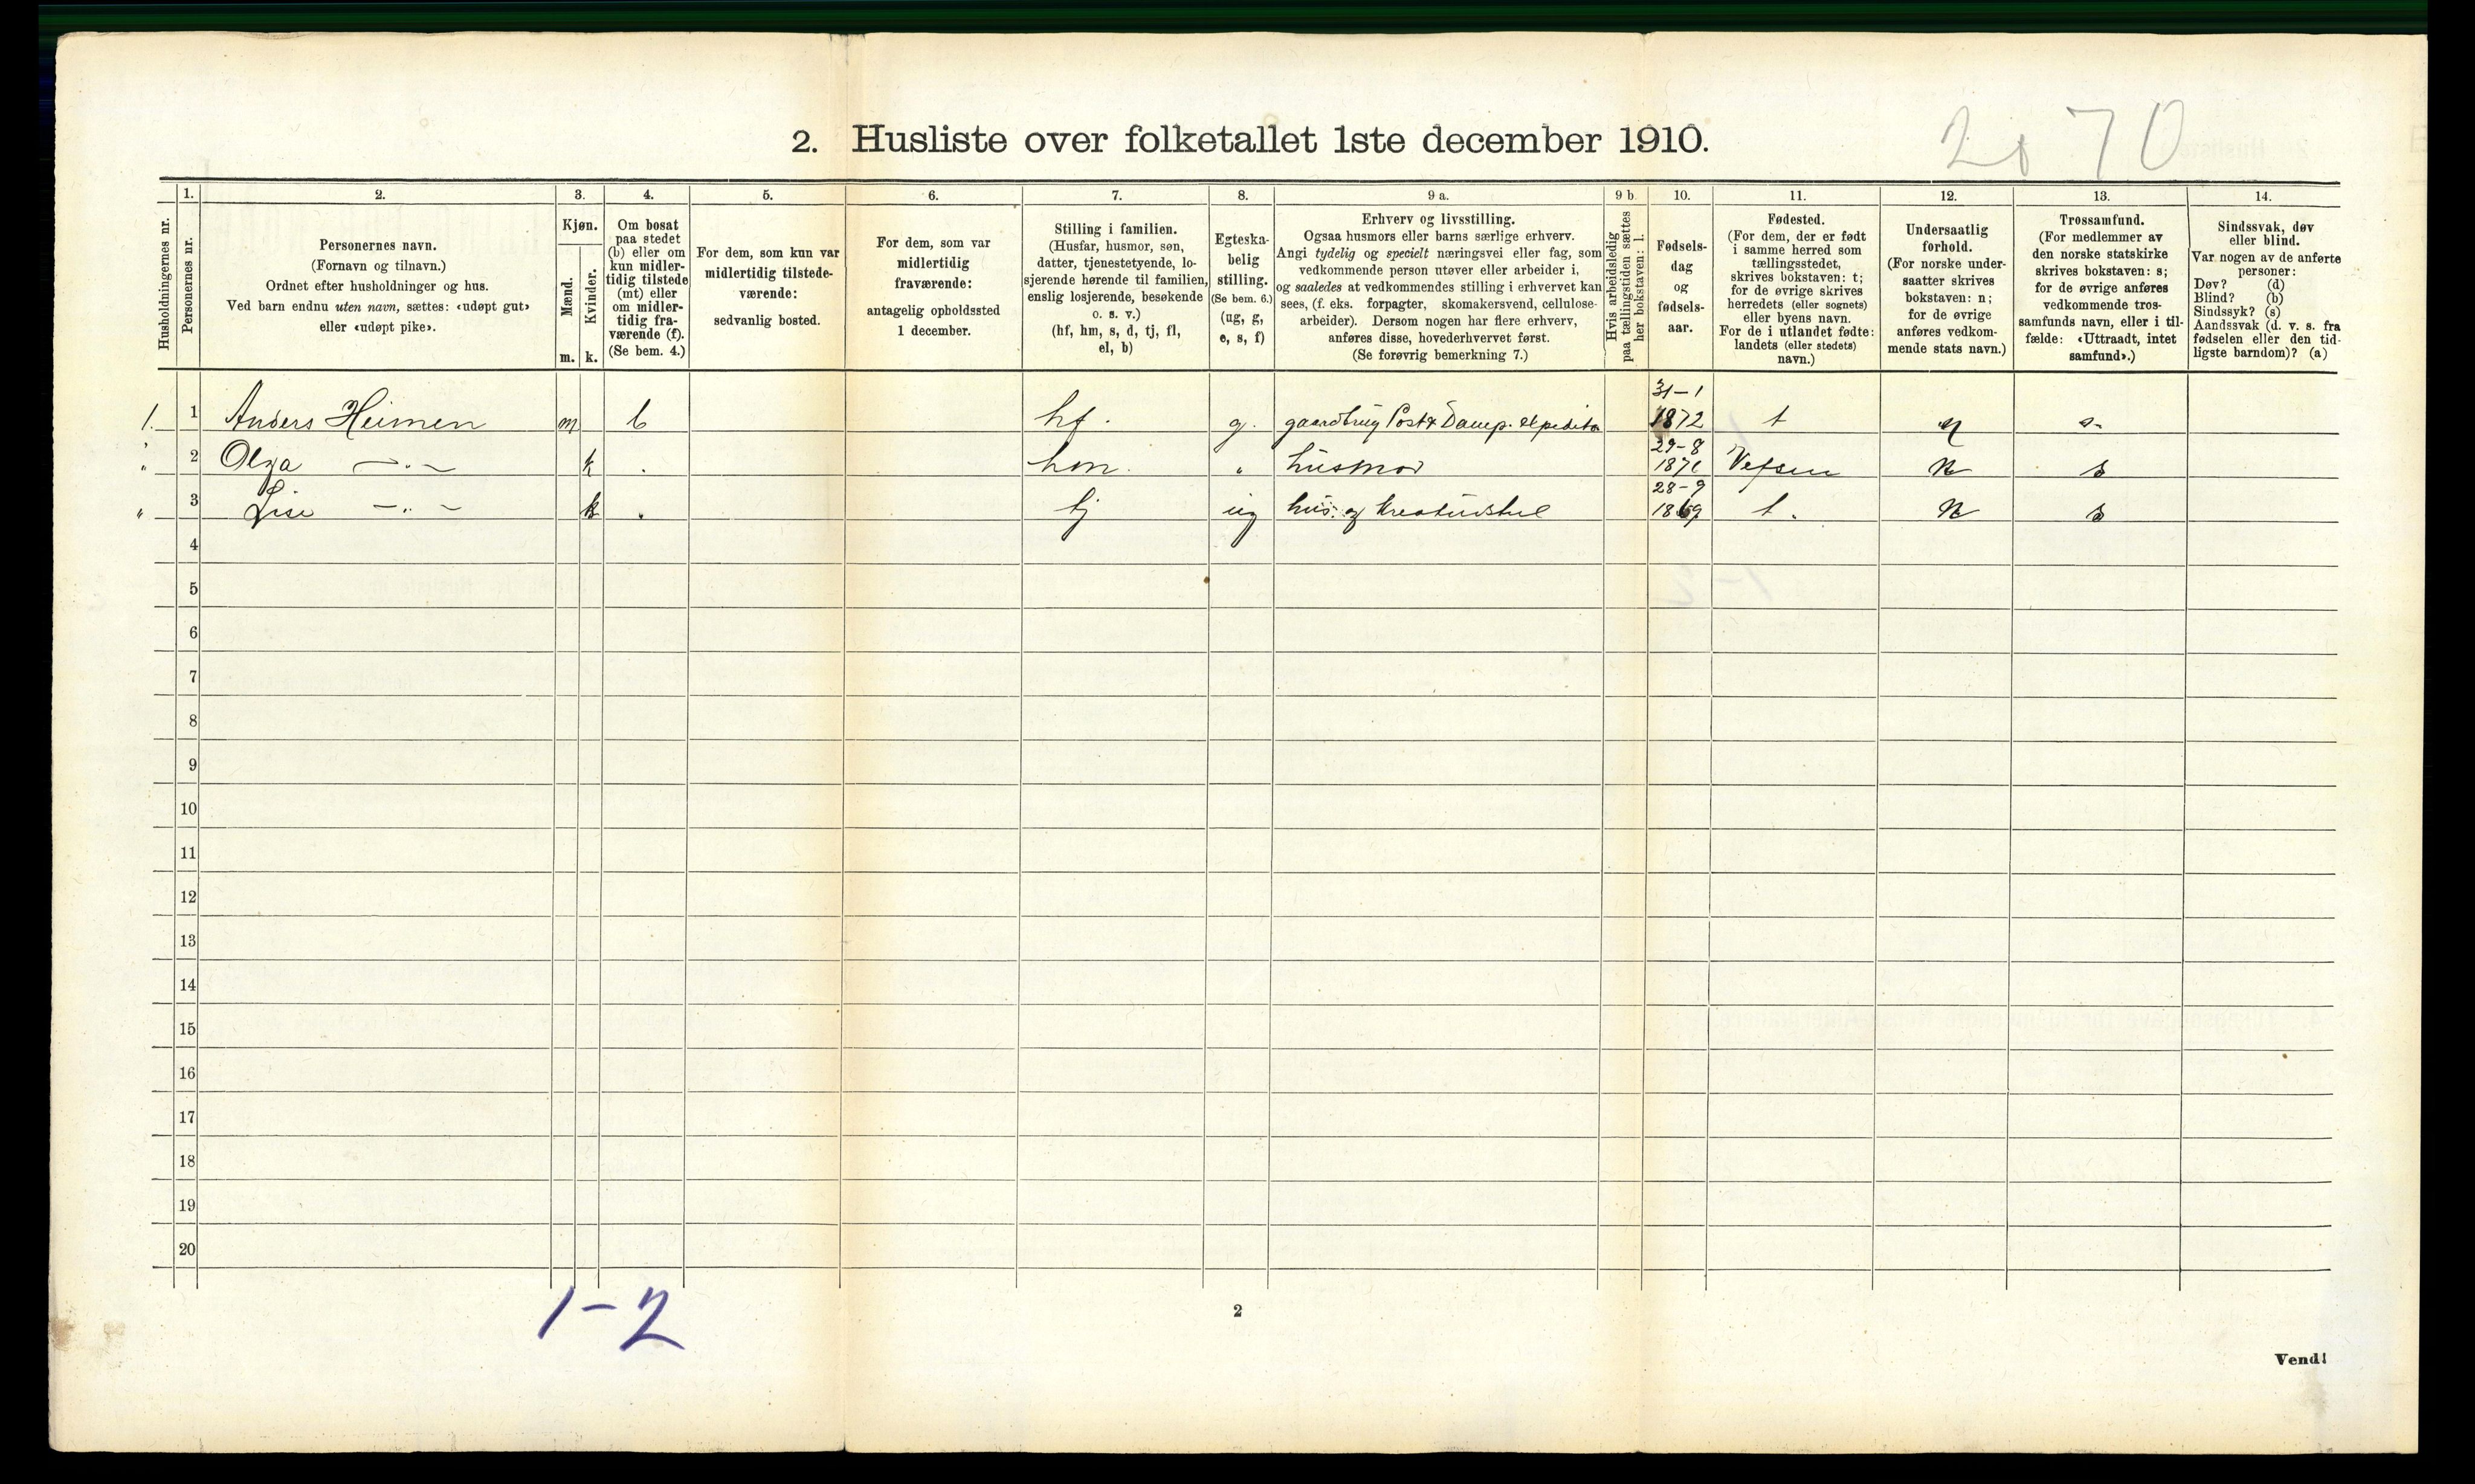 2070
2. Husliste over folketallet 1ste december 1910.
1. 2. 3. 4. 5. 6. 7. 8. 9 a. 9 b. 10. 11. 12. 13. 14.
Husholdningernes nr.
Personernes nr.
Personernes navn.
(Fornavn og tilnavn.)
Ordnet efter husholdninger og hus.
Ved barn endnu uten navn, sættes: «udøpt gut»
eller «udøpt pike».
Kjøn.
Mænd.
Kvinder.
m. k.
Om bosat
paa stedet
(b) eller om
kun midler-
tidig tilstede
(mt) eller
om midler-
tidig fra-
værende (f).
(Se bem. 4.)
For dem, som kun var
midlertidig tilstede-
værende:
sedvanlig bosted.
For dem, som var
midlertidig
fraværende:
antagelig opholdssted
1 december.
Stilling i familien.
(Husfar, husmor, søn,
datter, tjenestetyende, lo-
sjerende hørende til familien,
enslig losjerende, besøkende
o. s. v.)
(hf, hm, s, d, tj, fl,
el, b)
Egteska-
belig
stilling.
(Se bem. 6.)
(ug, g,
e, s, f)
Erhverv og livsstilling.
Ogsaa husmors eller barns særlige erhverv.
Angi tydelig og specielt næringsvei eller fag, som
vedkommende person utøver eller arbeider i,
og saaledes at vedkommendes stilling i erhvervet kan
sees, (f. eks. forpagter, skomakersvend, cellulose-
arbeider). Dersom nogen har flere erhverv,
anføres disse, hovederhvervet først.
(Se forøvrig bemerkning 7.)
Hvis arbeidsledig
paa tællingstiden sættes
her bokstaven: l.
Fødsels-
dag
og
fødsels-
aar.
Fødested.
(For dem, der er født
i samme herred som
tællingsstedet,
skrives bokstaven: t;
for de øvrige skrives
herredets (eller sognets)
eller byens navn.
For de i utlandet fødte:
landets (eller stedets)
navn.)
Undersaatlig
forhold.
(For norske under-
saatter skrives
bokstaven: n;
for de øvrige
anføres vedkom-
mende stats navn.)
Trossamfund.
(For medlemmer av
den norske statskirke
skrives bokstaven: s;
for de øvrige anføres
vedkommende tros-
samfunds navn, eller i til-
fælde: «Uttraadt, intet
samfund».)
Sindssvak, døv
eller blind.
Var nogen av de anførte
personer:
Døv? (d)
Blind? (b)
Sindssyk? (s)
Aandssvak (d. v. s. fra
fødselen eller den tid-
ligste barndom)? (a)
31-1
1. 1 Anders Heimen m b hf. g. gaardbrug Post & Damp. expeditør 1872 t n s
29-8
" 2 Olga —"— k " hm. " husmor 1871 Vefsen n s
28-9
" 3 Lise —"— k " tj ug hus. og kreaturstel 1869 t. n s
4
5
6
7
8
9
10
11
12
13
14
15
16
17
18
19
20
1-2
2
Vend!